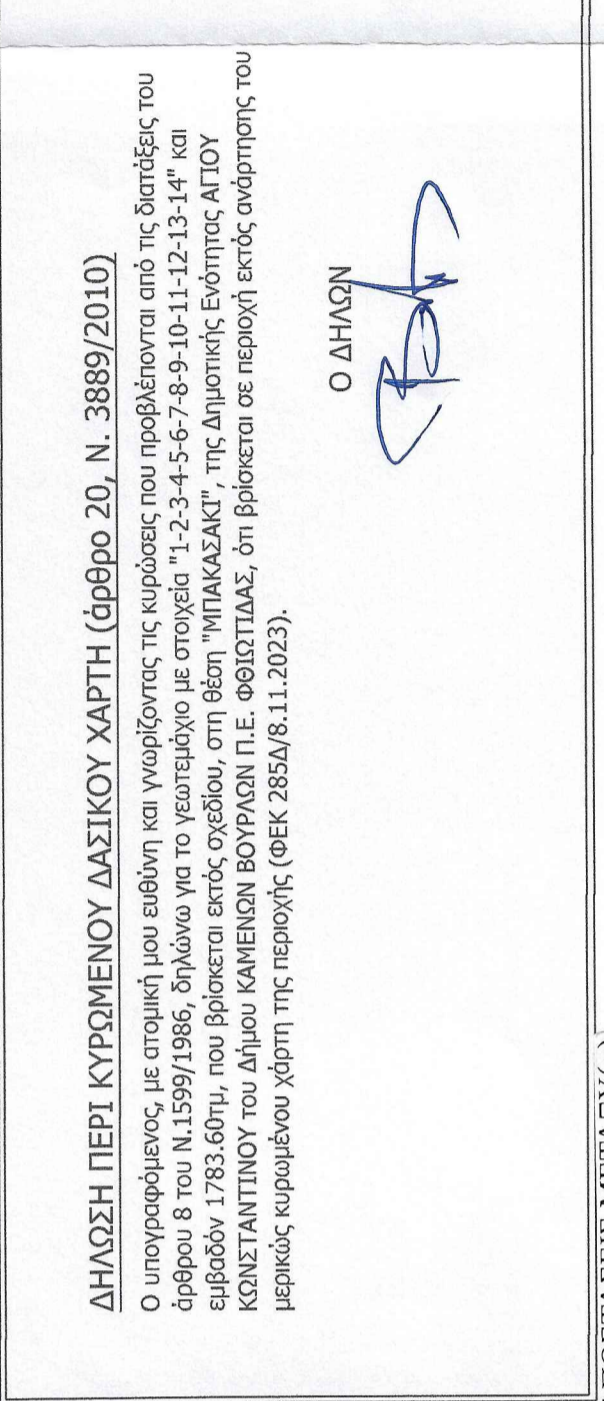 ΔΗΛΩΣΗ ΠΕΡΙ ΚΥΡΩΜΕΝΟΥ ΔΑΣΙΚΟΥ ΧΑΡΤΗ (άρθρο 20, Ν. 3889/2010)
Ο υπογραφόμενος, με ατομική μου ευθύνη και γνωρίζοντας τις κυρώσεις που προβλέπονται από τις διατάξεις του
άρθρου 8 του Ν.1599/1986, δηλώνω για το γεωτεμάχιο με στοιχεία "1-2-3-4-5-6-7-8-9-10-11-12-13-14" και
εμβαδόν 1783.60τμ, που βρίσκεται εκτός σχεδίου, στη θέση "ΜΠΑΚΑΣΑΚΙ", της Δημοτικής Ενότητας ΑΓΙΟΥ
ΚΩΝΣΤΑΝΤΙΝΟΥ του Δήμου ΚΑΜΕΝΩΝ ΒΟΥΡΛΩΝ Π.Ε. ΦΘΙΩΤΙΔΑΣ, ότι βρίσκεται σε περιοχή εκτός ανάρτησης του
μερικώς κυρωμένου χάρτη της περιοχής (ΦΕΚ 285Δ/8.11.2023).
Ο ΔΗΛΩΝ